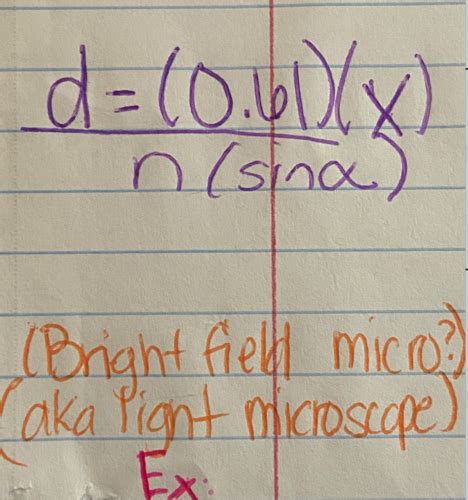 d = (0.61)(x)
n (sinα)
(Bright field micro?)
(aka light microscope)
Ex: